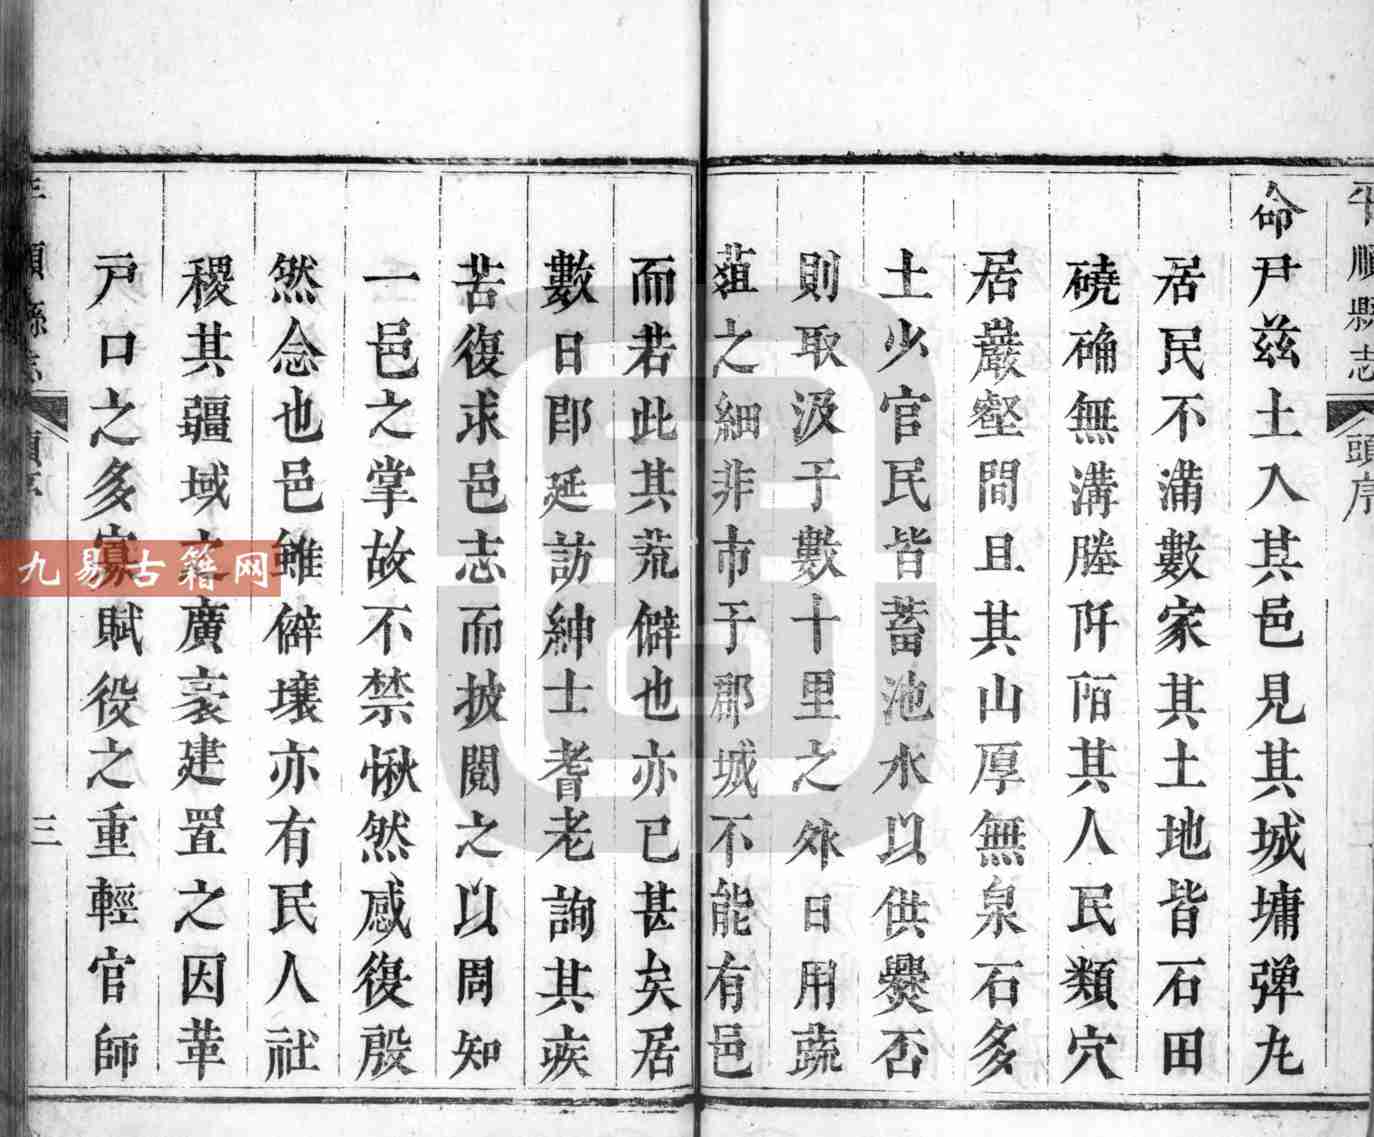 平順縣志
頭序
命尹茲土入其邑見其城墉弹九
居民不滿數家其土地皆石田
磽确無溝塍阡陌其人民類穴
居巖壑間且其山厚無泉石多
土少官民皆蓄池水以供爨否
則取汲于數十里之外日用蔬
葅之細非市于郡城不能有邑
而若此其荒僻也亦已甚矣居
數日即延訪紳士耆老詢其疾
苦復求邑志而披閱之以周知
一邑之掌故不禁愀然感復殷
然念也邑雖僻壤亦有民人社
稷其疆域之廣袤建置之因革
户口之多寡賦役之重輕官師
順縣志
三
九易古籍网